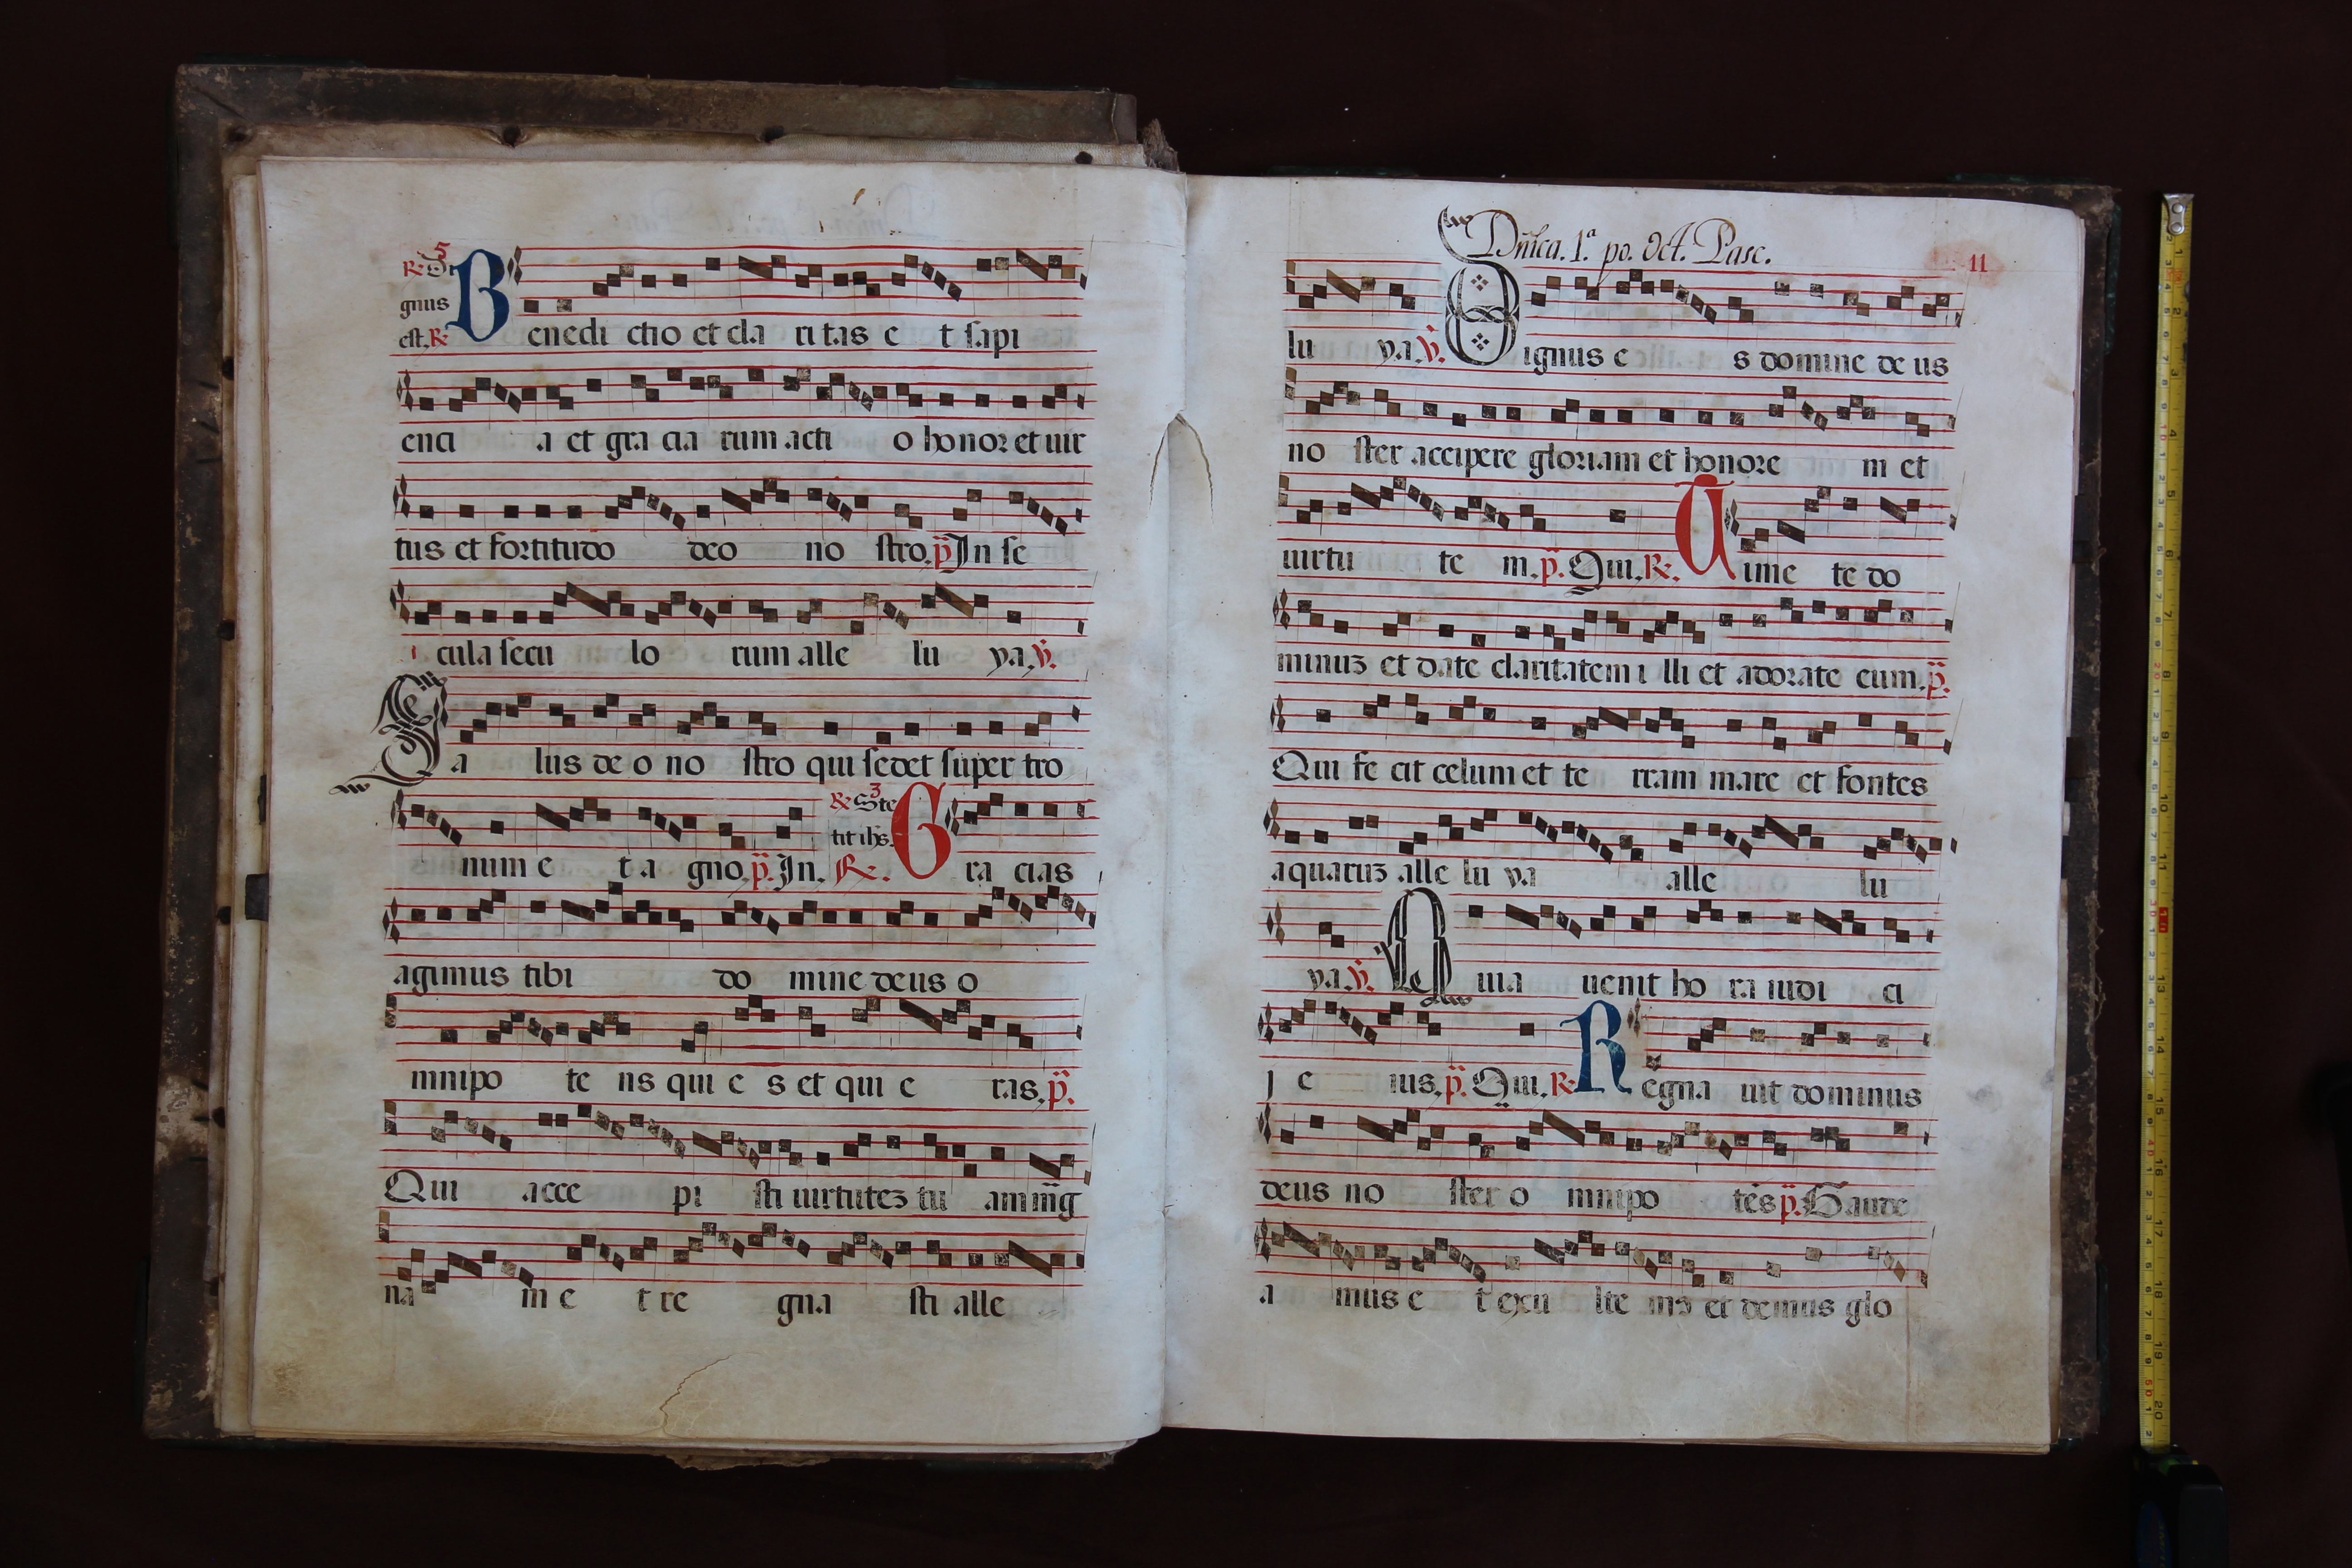 R. Di 5
gnus
est. R.
Benedi ctio et cla ri tas e t sapi
enci a et gra cia rum acti o honor et uir
tus et fortitudo deo no stro. p. In se
cula secu lo rum alle lu ya. v.
Sa lus de o no stro qui sedet super tro
R. Ste 3
tit ihs.
num e t a gno. p. In. R. Gra cias
agimus tibi do mine deus o
mnipo te ns qui e s et qui e ras. p.
Qui acce pi sti uirtutez tu am mg
na m e t re gna sti alle
Dnica. 1ª po. Oct. Pasc.
11
lu ya. v. Dignus e s domine de us
no ster accipere gloriam et honore m et
uirtu te m. p. Qui. R. Time te do
minuz et date claritatem i lli et adorate eum. p.
Qui fe cit celum et te rram mare et fontes
aquaruz alle lu ya alle lu
ya. v. Quia uenit ho ra iudi ci
j e ius. p. Qui. R. Regna uit dominus
deus no ster o mnipo tes p. Gaude
a mus e t exu lte ms et demus glo